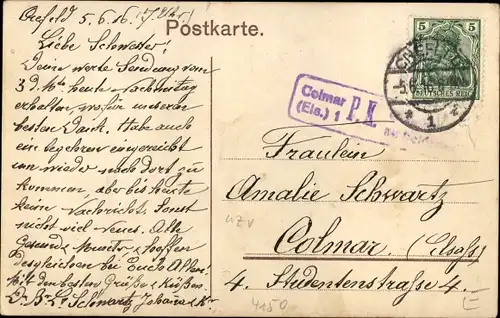 Crefeld 5.6.16. (7 Uhr.)
Postkarte.
Liebe Schwester!
Deine werte Sendung vom
3. d. Mts heute Nachmittag
erhalten, wofür meinen
besten Dank. Habe auch
ein eingereicht
um wieder nach dort zu
kommen, aber bis heute
keine Nachricht. Sonst
nicht viel neues. Alle
Gesund & Munter, hoffen
desgleichen bei Euch Allen.
Mit den besten Grüße & Küßen
Schwartz
5 5
DEUTSCHES REICH
CREFELD
5.6.16
* 1 z
Colmar P. K.
(Els.) 1
Fräulein
Amalie Schwartz
Colmar. (Elsass)
4. Studentenstrasse 4.
4150